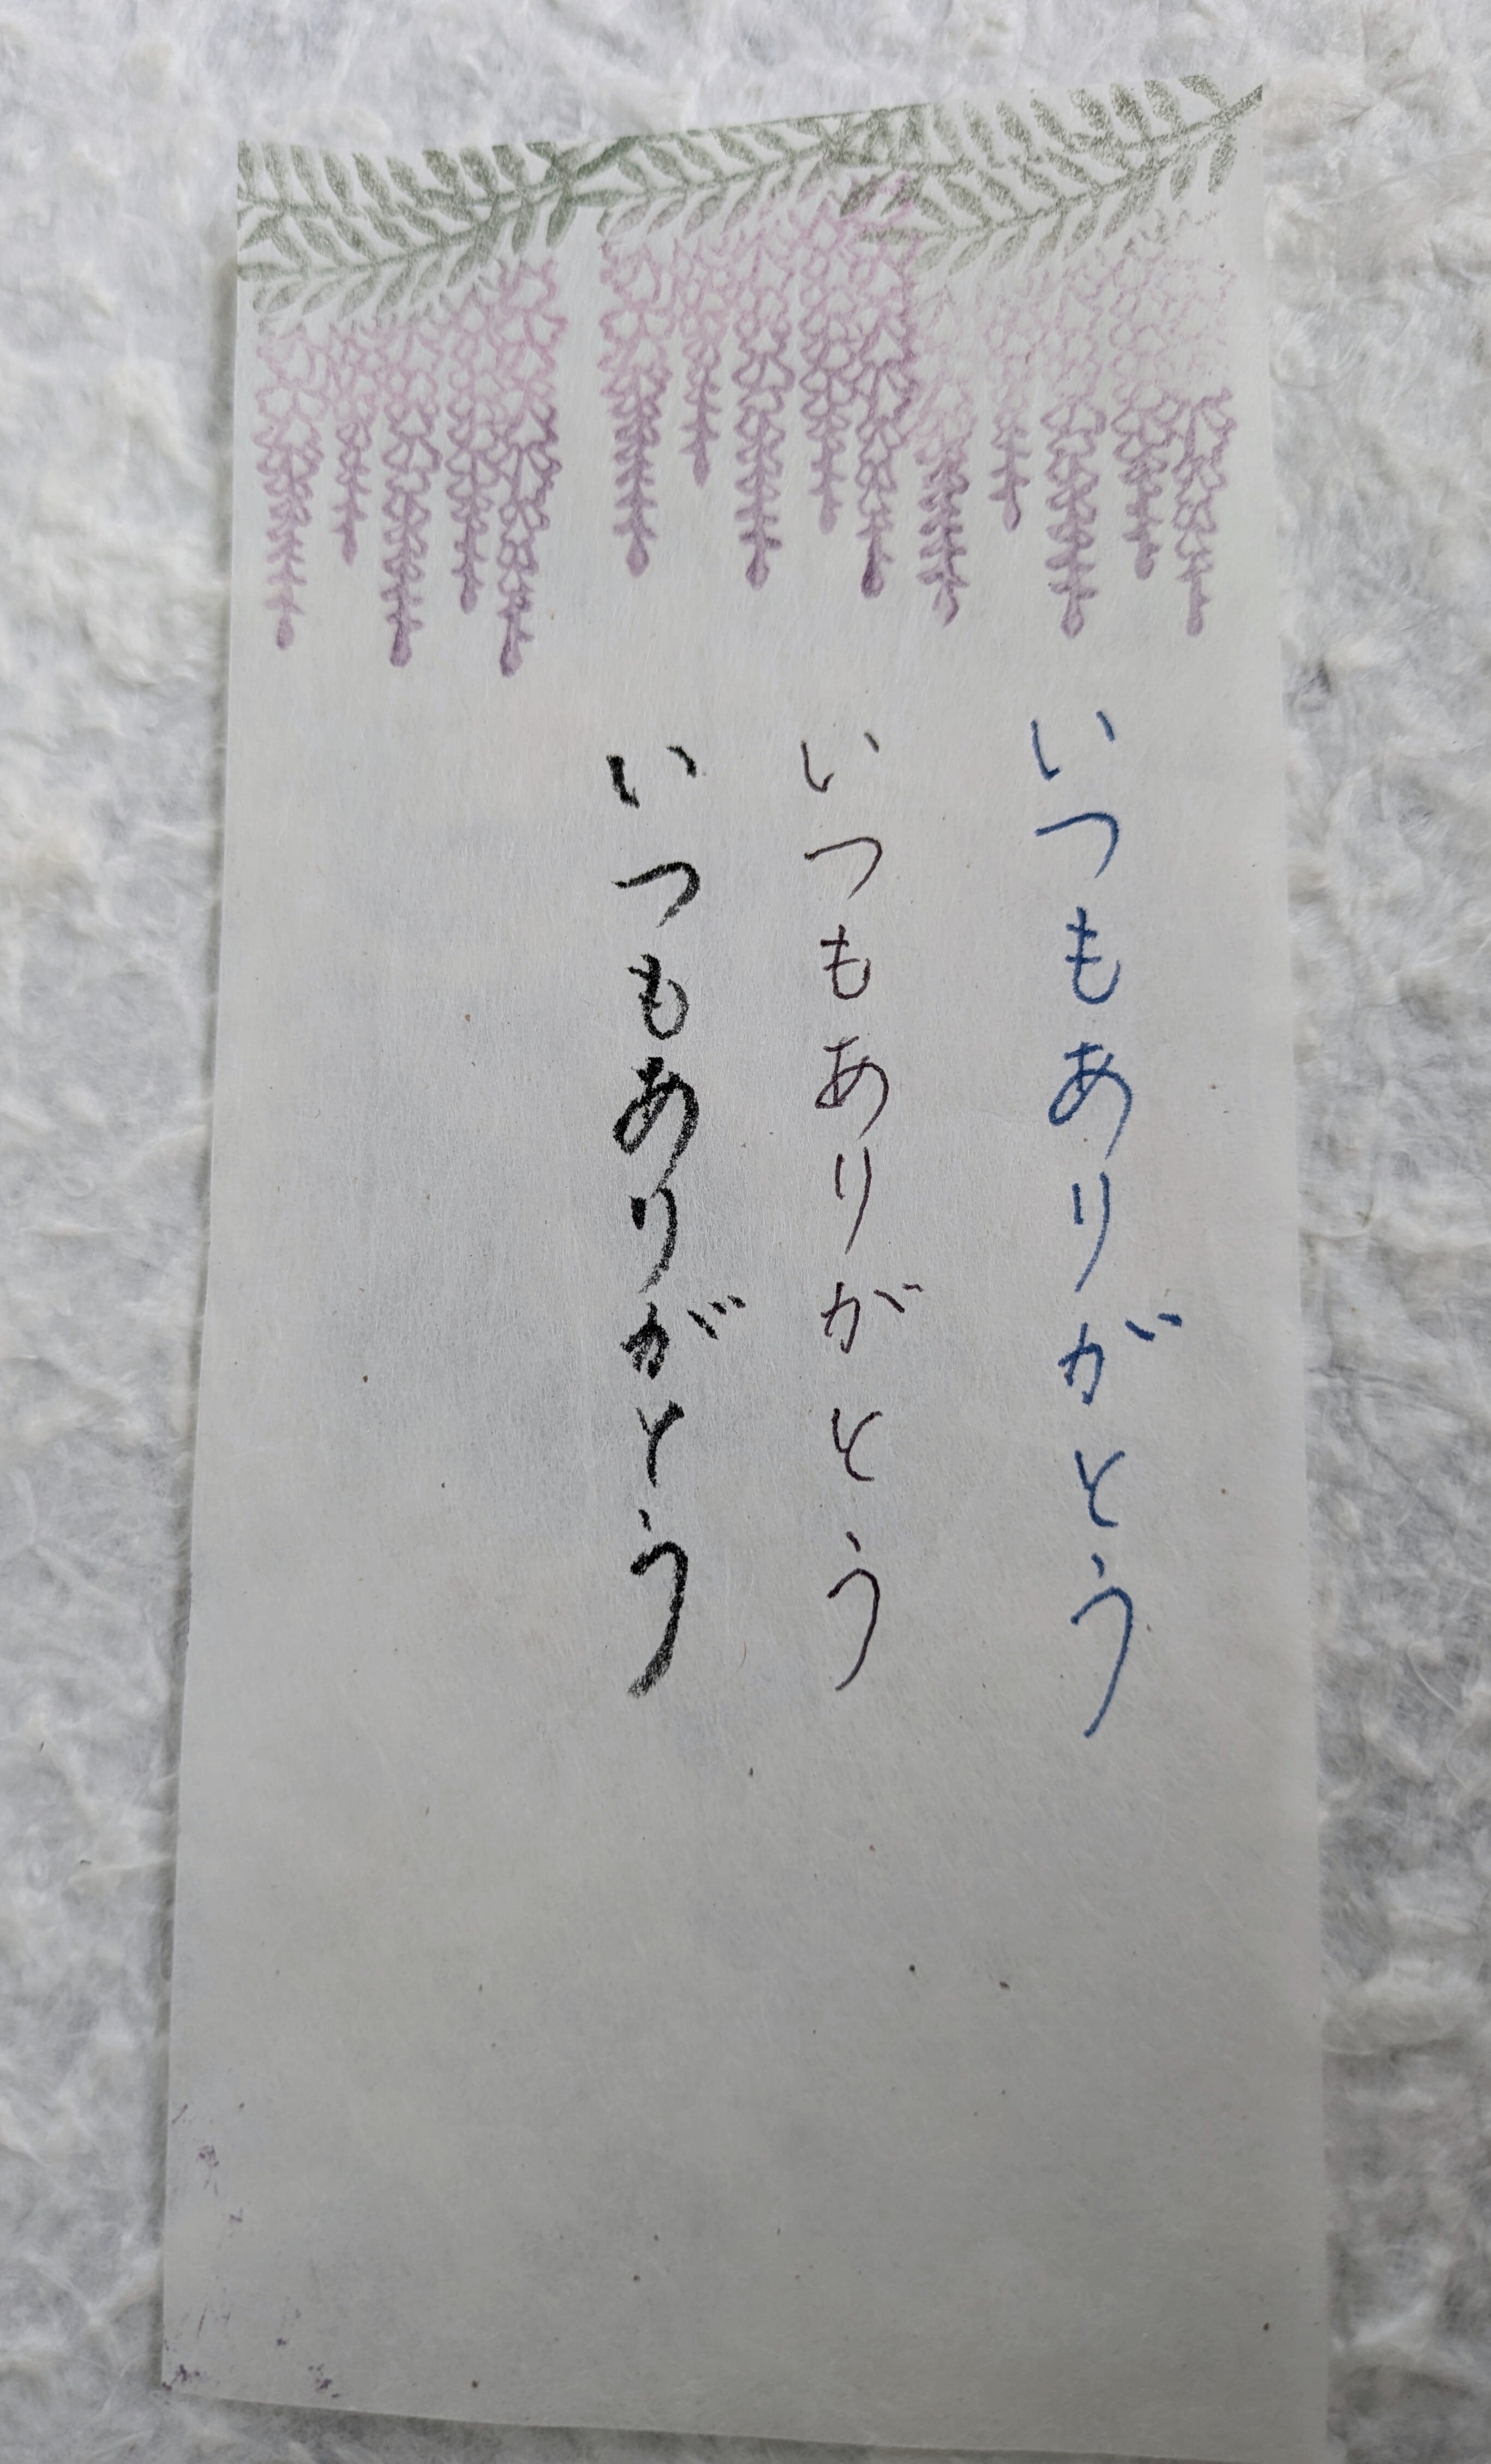 いつもありがとう
いつもありがとう
いつもありがとう